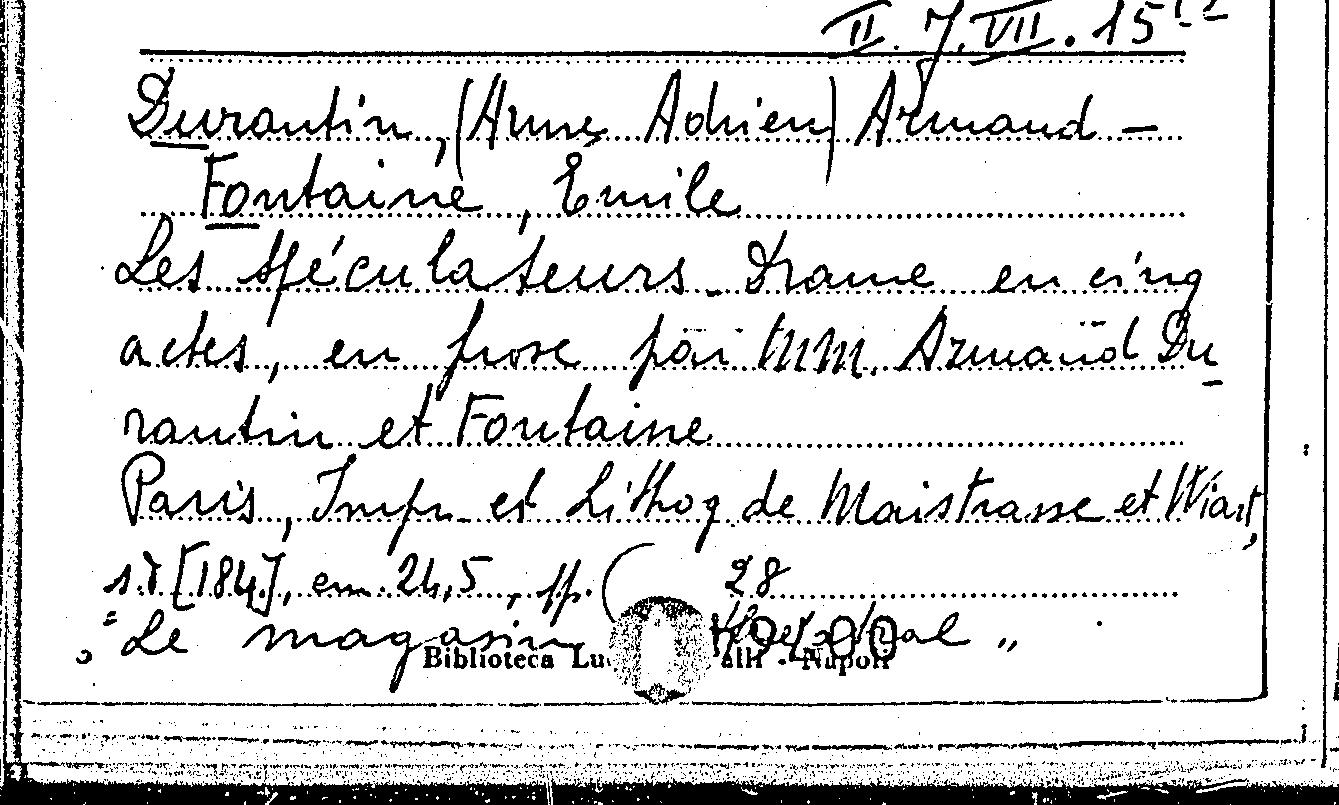 II. J. VII. 15
Durantin, (Anne Adrien) Armand -
Fontaine, Emile
Les spéculateurs. Drame en cinq
actes, en prose par MM. Armand Du
rantin et Fontaine
Paris, Impr. et Lithog de Maistrasse et Wiart,
s.d [184.], cm. 24,5, pp. ( 28
"Le magasin théâtral"
Biblioteca Lu alli - Napoli